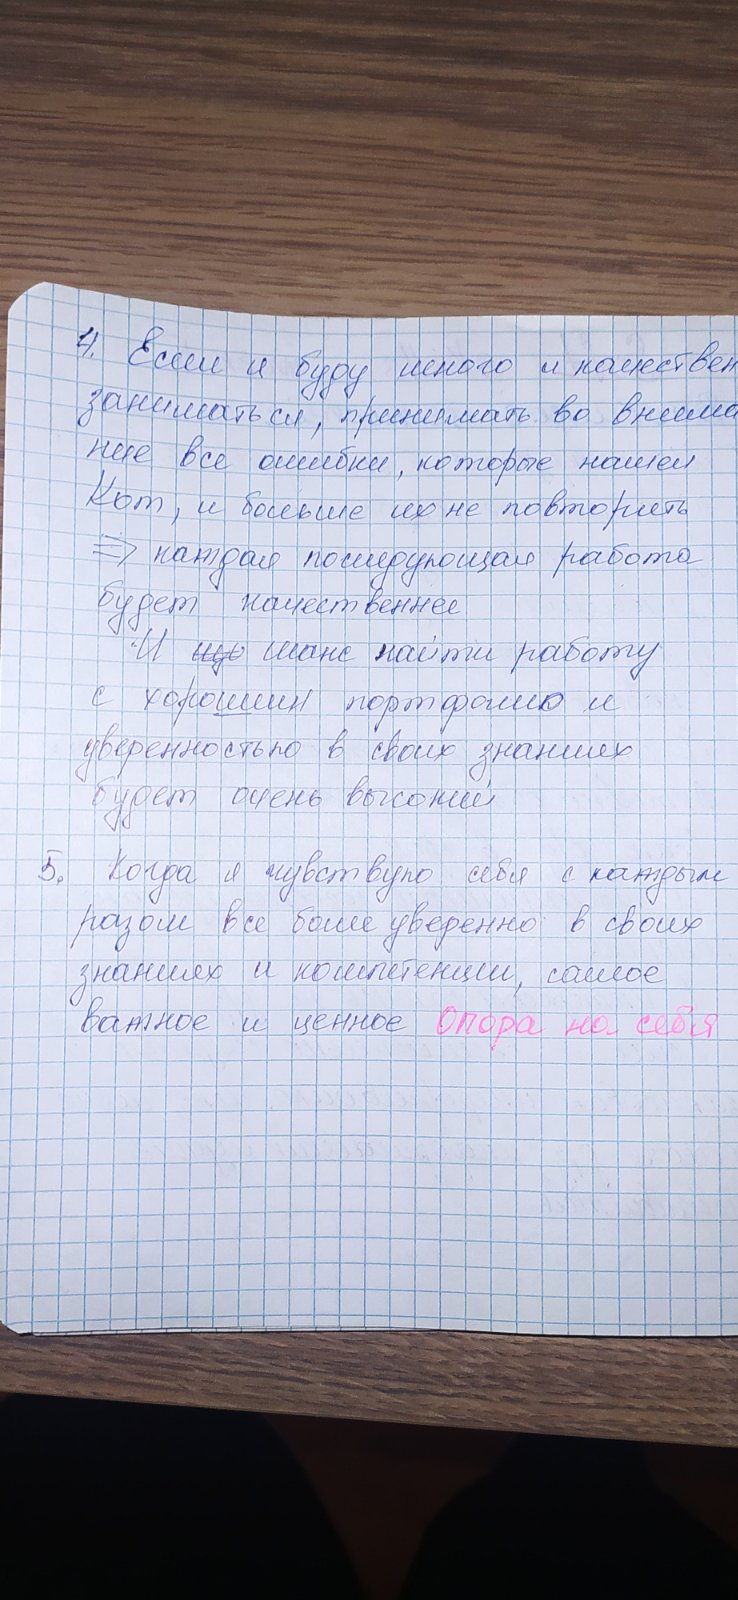 4. Если я буду много и качествен
заниматься, принимать во внима
ние все ошибки, которые нашел
Кот, и больше их не повторить
=> каждая последующая работа
будет качественнее
И шанс найти работу
с хорошим портфолио и
уверенностью в своих знаниях
будет очень высокий
5. Когда я чувствую себя с каждым
разом все более уверенно в своих
знаниях и компетенции, самое
важное и ценное опора на себя